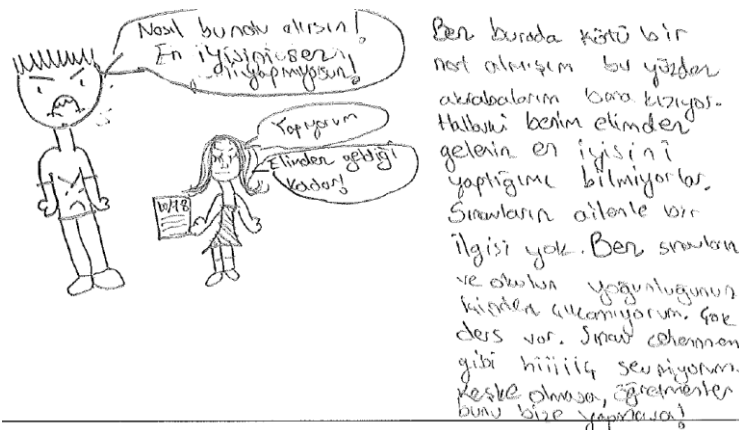 Nasıl bundu alırsın!
En iyisini sen
yapmıyosun!
Yapıyorum
Elimden geldiği
kadar!
10/78
Ben burada kötü bir
not almışım bu yüzden
akrabalarım bana kızıyor.
Halbuki benim elimden
gelenin en iyisini
yaptığımı bilmiyorlar.
Sınavların ailemle bir
ilgisi yok. Ben sınavların
ve okulun yoğunluğunun
içinden çıkamıyorum. Çok
ders var. Sınav cehennem
gibi hiiiiiç sevmiyorum.
Keşke olmasa, öğretmenler
bunu bize yapmasa!